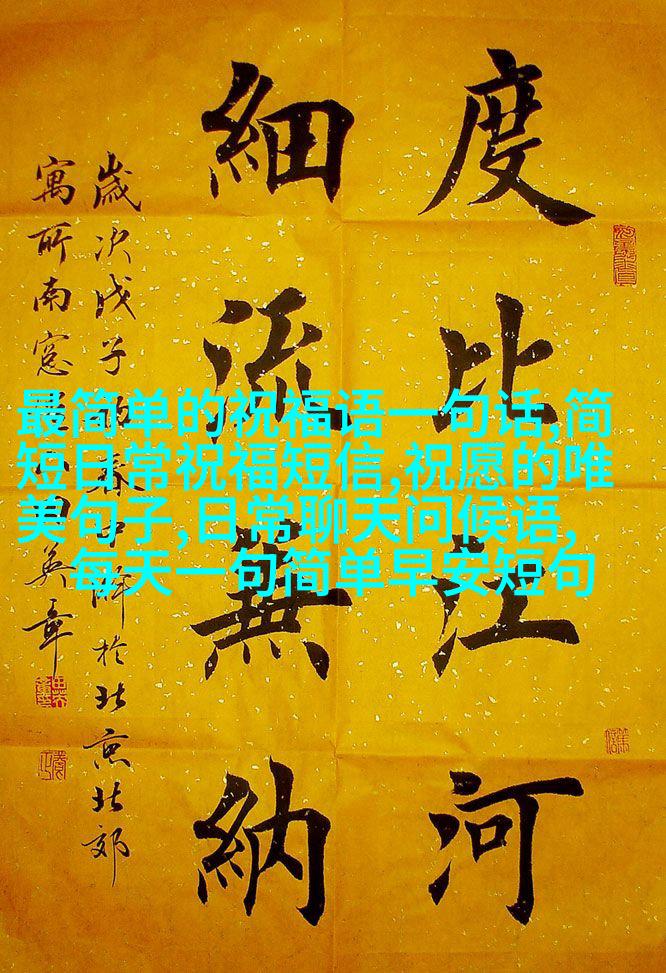 度比江河
細流無納
歲次戊子春中澣於北京北郊
寓所南窓田英章
最简单的祝福语一句话,简
短日常祝福短信,祝愿的唯
美句子,日常聊天问候语,
每天一句简单早安短句